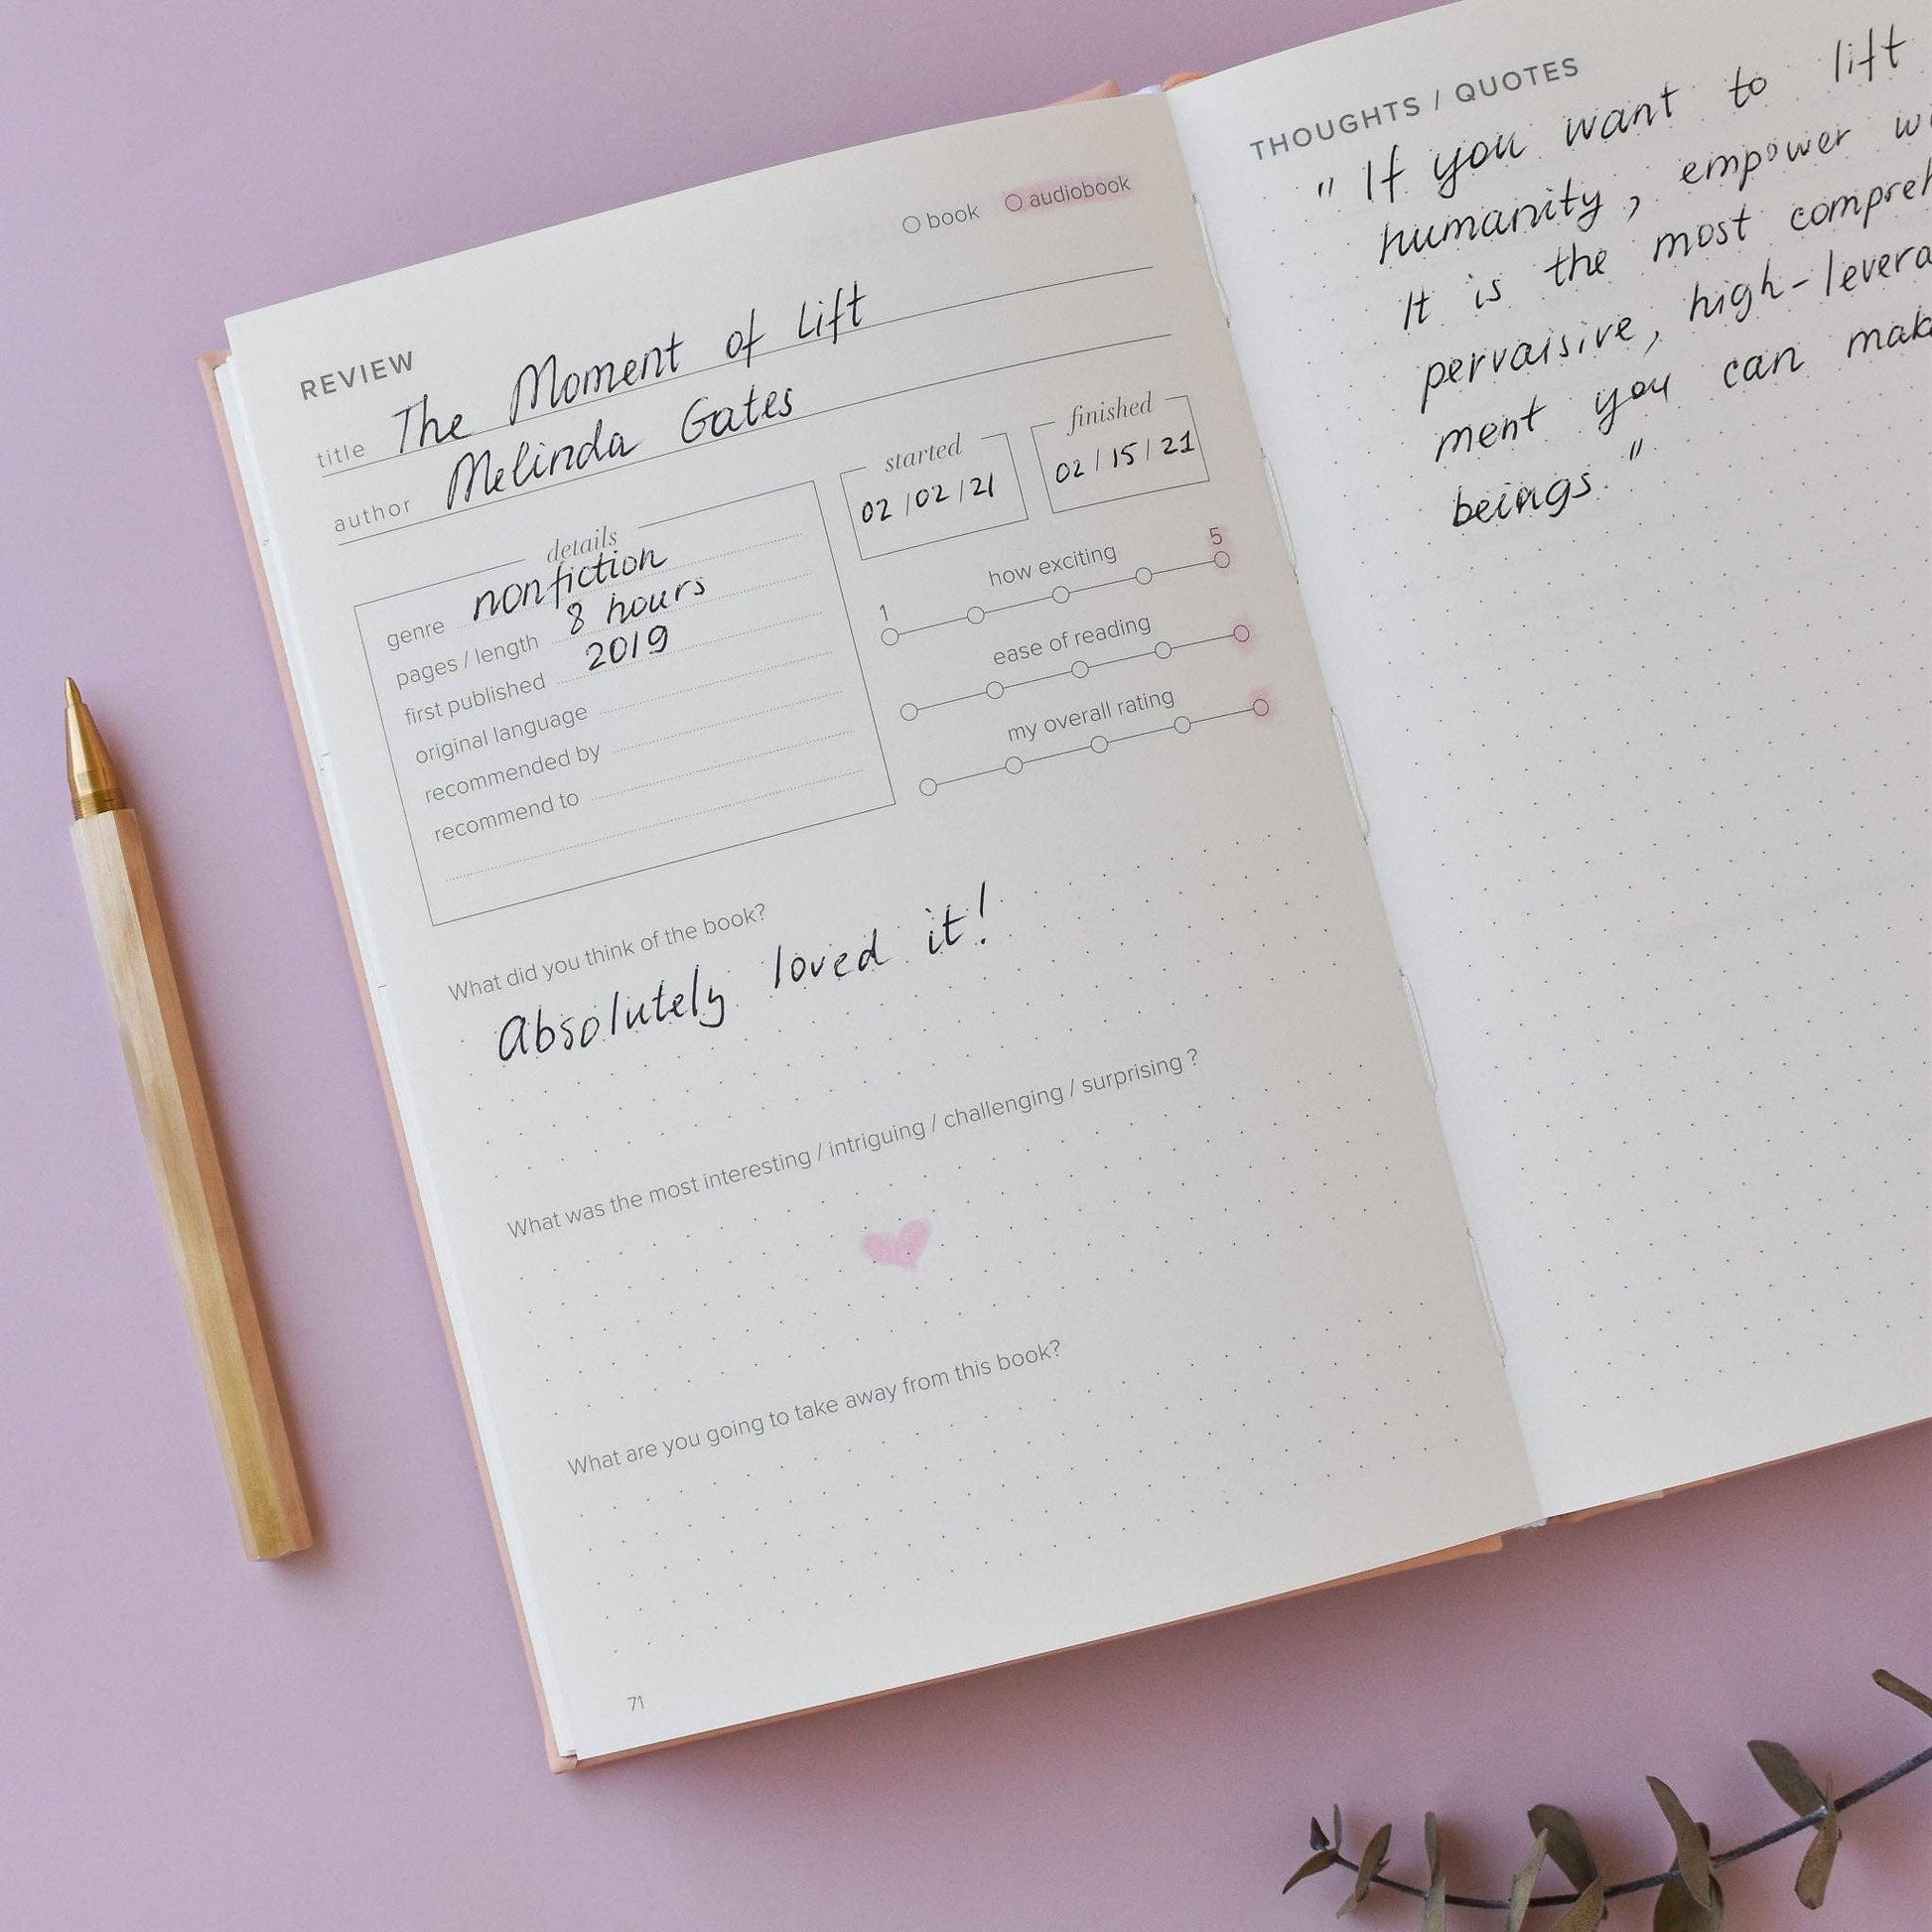 REVIEW
book audiobook
title The Moment of Lift
author Melinda Gates
details
genre nonfiction
pages / length 8 hours
first published 2019
original language
recommended by
recommend to
started
02/02/21
finished
02/15/21
how exciting
1 5
ease of reading
my overall rating
What did you think of the book?
Absolutely loved it!
What was the most interesting / intriguing / challenging / surprising?
What are you going to take away from this book?
71
THOUGHTS / QUOTES
"If you want to lift
humanity, empower
It is the most
pervaisive,
ment you can
beings."